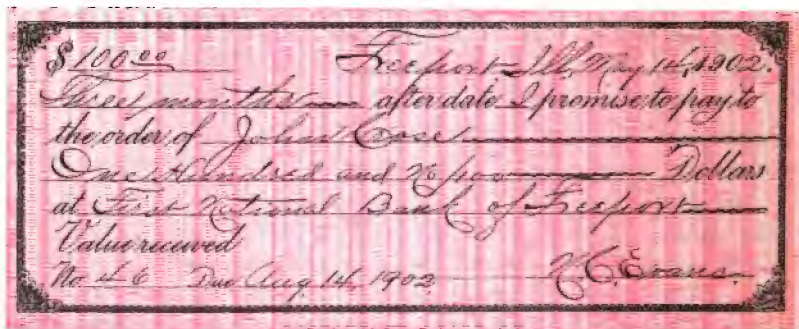 $100.00 Freeport Ill, May 14, 1902.
Three months after date I promise to pay to
the order of John Case
One Hundred and No/100 Dollars
at First National Bank of Freeport
Value received
No. 46 Due Aug. 14, 1902 Evans.